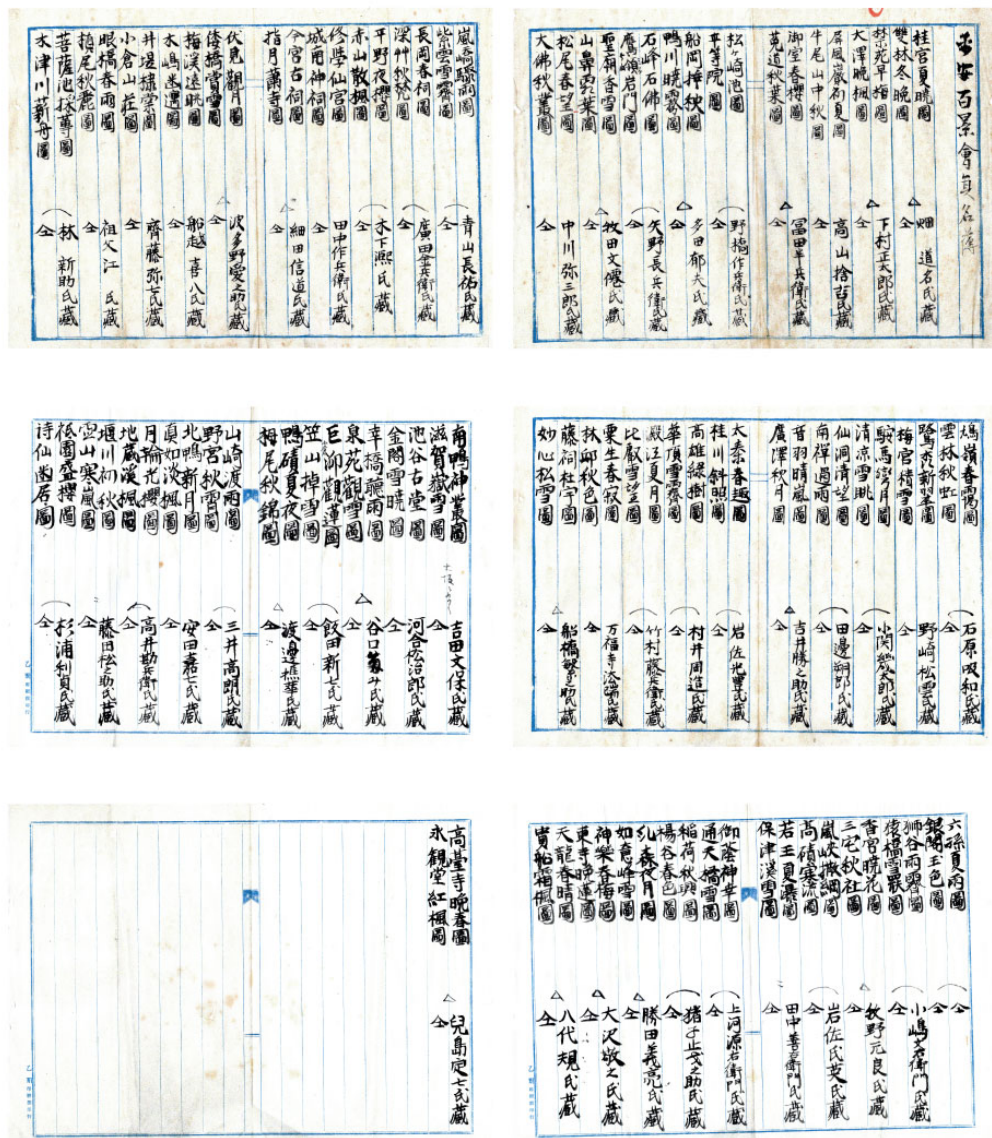 平安百景會員名簿
桂宮夏暁圖 畑 道名氏藏
雙林冬晩圖 仝
禁苑早梅圖 下村正太郎氏藏
大澤晩楓圖 仝
屏風巌初夏圖 高山捨吉氏藏
牛尾山中秋圖 仝
御室春櫻圖 冨田半兵衛氏藏
菟道秋葉圖 仝
松ヶ崎池圖 野橋作兵衛氏藏
平等院圖 仝
船岡掉秋圖 多田郁夫氏藏
鴨川暁霧圖 仝
石峰石佛圖 矢野長兵衛氏藏
鷹嶺岩門圖 仝
聖朝香雪圖 牧田文僊氏藏
山鼻霜葉圖 仝
松尾春望圖 中川弥三郎氏藏
大佛秋叢圖 仝
嵐峡驟雨圖 青山長祐氏藏
紫雲雪霽圖 仝
長岡春祠圖 廣田金兵衛氏藏
深艸秋蛩圖 仝
平野夜櫻圖 木下凞氏藏
赤山散楓圖 仝
修學仙宮圖 田中作兵衛氏藏
城南神祠圖 仝
今宮古祠圖 細田信道氏藏
指月蕭寺圖 仝
伏見觀月圖 波多野愛之助氏藏
倭橋賣雪圖 仝
梅溪遠眺圖 船越喜八氏藏
木嶋幽邃圖 仝
井堤棣棠圖 齊藤弥七氏藏
小倉山荘圖 仝
眼橋春雨圖 祖父江 氏藏
槙尾秋鹿圖 仝
菩薩池採蓴圖 林 新助氏藏
木津川薪舟圖 仝
鳩嶺春靄圖 石原吸和氏藏
雲林秋虹圖 仝
鷺森新翠圖 野崎松雲氏藏
梅宮精雪圖 仝
駝馬湾月圖 小関繁太郎氏藏
清凉雪眺圖 仝
仙洞清望圖 田邊朔郎氏藏
南禅過雨圖 仝
音羽晴嵐圖 吉井勝之助氏藏
廣澤秋月圖 仝
太秦春趣圖 岩佐光豊氏藏
桂川斜照圖 仝
高雄緑樹圖 村井周造氏藏
華頂雪齋圖 仝
澱江夏月圖 竹村藤兵衛氏藏
比叡雪望圖 仝
粟生春寂圖 万福寺法瑞氏藏
林邱秋色圖 仝
藤祠杜宇圖 船橋繁之助氏藏
妙心松雪圖 仝
南鴨神叢圖 吉田文保氏藏
滋賀嶽雪圖 仝
池谷古堂圖 河合弘治郎氏藏
金閣雪暁圖 仝
幸橋聴雨圖 谷口菊斗氏藏
泉苑觀雪圖 仝
巨泖觀蓮圖 飯田新七氏藏
笠山掉雪圖 仝
鴨磧夏夜圖 渡邊樵華氏藏
栂尾秋錦圖 仝
山崎渡雨圖 三井高朗氏藏
野宮秋霽圖 仝
北鴨新月圖 安田嘉七氏藏
真如淡楓圖 仝
月輪花櫻圖 高井勘兵衛氏藏
地蔵淡楓圖 仝
堰川初秋圖 藤田松之助氏藏
雲山寒嵐圖 仝
祗園盛櫻圖 杉浦利貞氏藏
詩仙幽居圖 仝
六孫夏雨圖 仝
銀閣玉色圖 仝
獅谷雨霽圖 小嶋文右衛門氏藏
猿橋雪猴圖 仝
香宮暁花圖 牧野元良氏藏
三宅秋社圖 仝
嵐峡撒網圖 岩佐氏英氏藏
高磧寒流圖 仝
若王夏瀑圖 田中善右衛門氏藏
保津渓雪圖 仝
御蔭神幸圖 上河源右衛門氏藏
通天橋雪圖 仝
稲荷秋興圖 猪子止戈之助氏藏
楊谷春色圖 仝
糺森夜月圖 勝田義亮氏藏
如意峰雪圖 仝
神樂春梅圖 大沢敬之氏藏
東寺晩蓮圖 仝
天龍春晴圖 八代規氏藏
貴船霜楓圖 仝
高臺寺晩春圖 兒島定七氏藏
永觀堂紅楓圖 仝